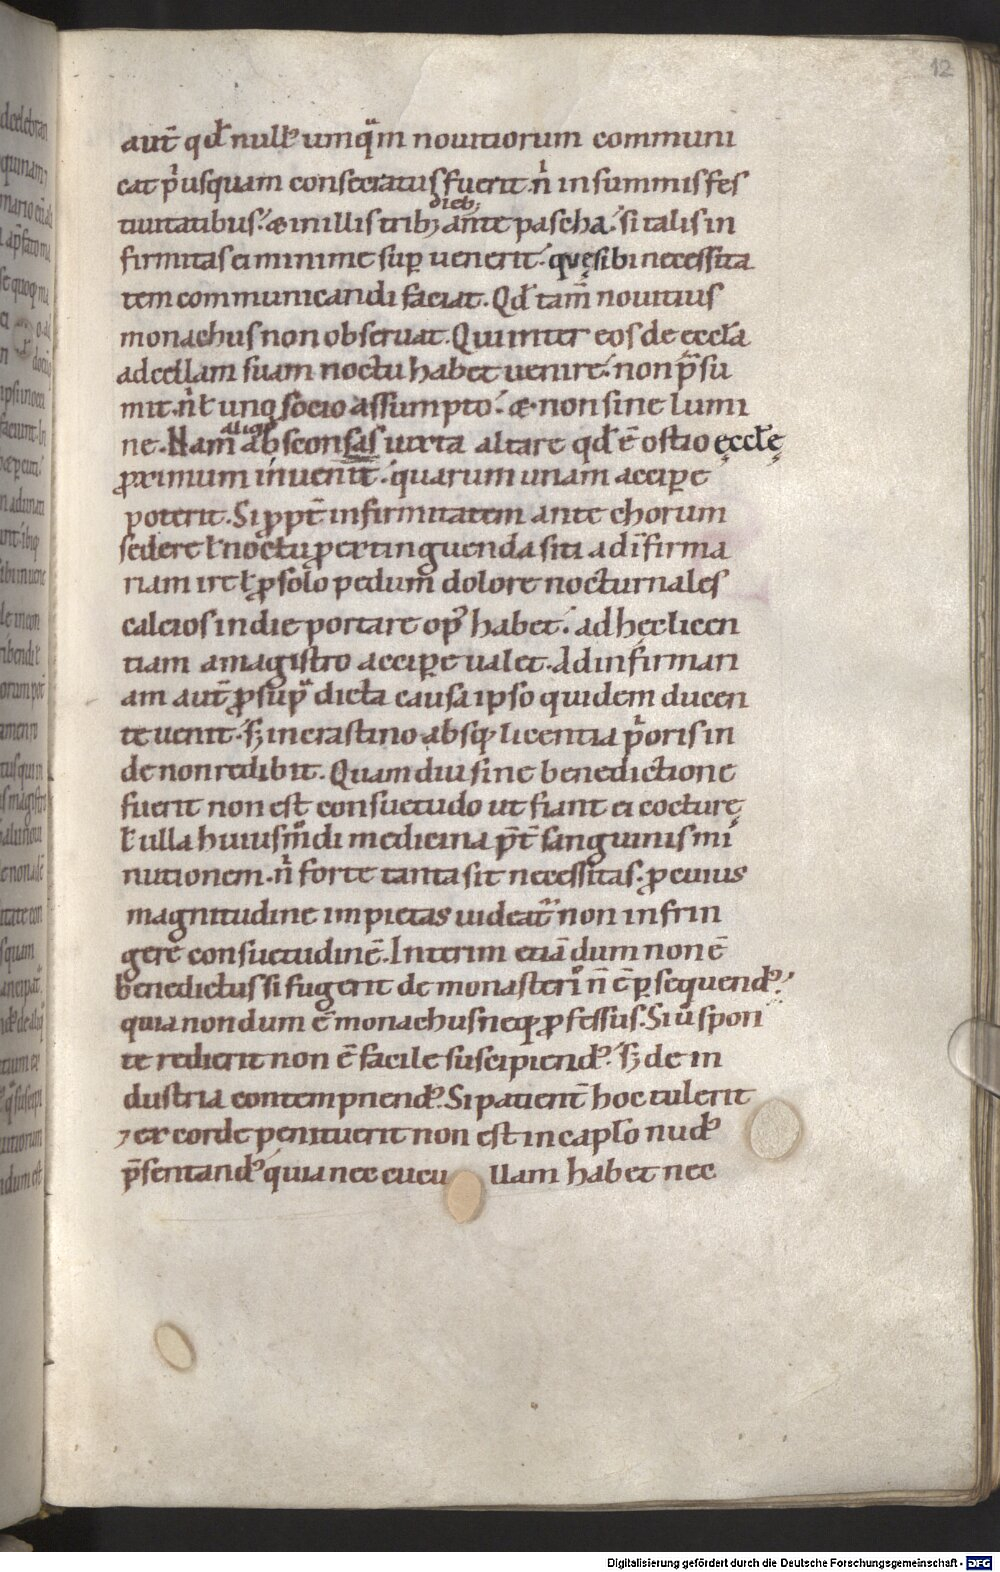 12
aut̄ qđ null᷒ umqᵃm nouitiorum communi
cat pⁱusquam consecratus fuerit. nⁱ in summis fes
tiuitatibus. & in illis trib; dieb; ante pascha. si talis in
firmitas ei minime sup uenerit. quę sibi necessita
tem communicandi faciat. Qđ tam̄ nouitius
monachus non obseruat. Qui inter eos de eccła
ad cellam suam noctu habet uenire. non p̄su
mit. nⁱ ł uno socio assumpto. & non sine lumi
ne. Nam aliqᵃs absconsas iuxta altare qđ ē ostio ęccłę
proximum inuenit. quarum unam accipe
poterit. Si ꝓpt̄ infirmitatem ante chorum
sedere ł noctu ꝓ extinguenda siti ad īfirma
riam ire ł ꝓ solo pedum dolore nocturnales
calcios in die portare op᷒ habet. ad hęc licen
tiam a magistro accipe ualet. Ad infirmari
am aut̄ ꝓ supᵃ dicta causa ipso quidem ducen
te uenit. sꝫ in crastino absq; licentia pⁱoris in
de non redibit. Quam diu sine benedictione
fuerit non est consuetudo ut fiant ei cocturę
ł ulla huiusmᵒdi medicina p̄t sanguinis mi
nutionem. nⁱ forte tanta sit necessitas. ꝓ cuius
magnitudine impietas uideat᷒ non infrin
gere consuetudinē. Interim etiā dum non ē
benedictus si fugerit de monasterⁱo n̄ ē ꝑsequend᷒.
quia nondum ē monachus neq; ꝓfessus. Si ū spon
te redierit non ē facile suscipiend᷒. sꝫ de in
dustria contempnend᷒. Si patient̄ hoc tulerit
⁊ ex corde penituerit non est in capło nud᷒
p̄sentand᷒ quia nec cucu llam habet nec
Digitalisierung gefördert durch die Deutsche Forschungsgemeinschaft - DFG